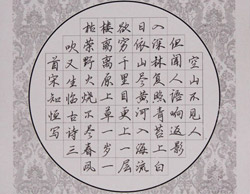 空山不见人
但闻人语响返影
入深林复照青苔上白
日依山尽黄河入海流
欲穷千里目更上一层
楼离离原上草一岁一
枯荣野火烧不尽春风
吹又生临古诗三
首宋知恒写